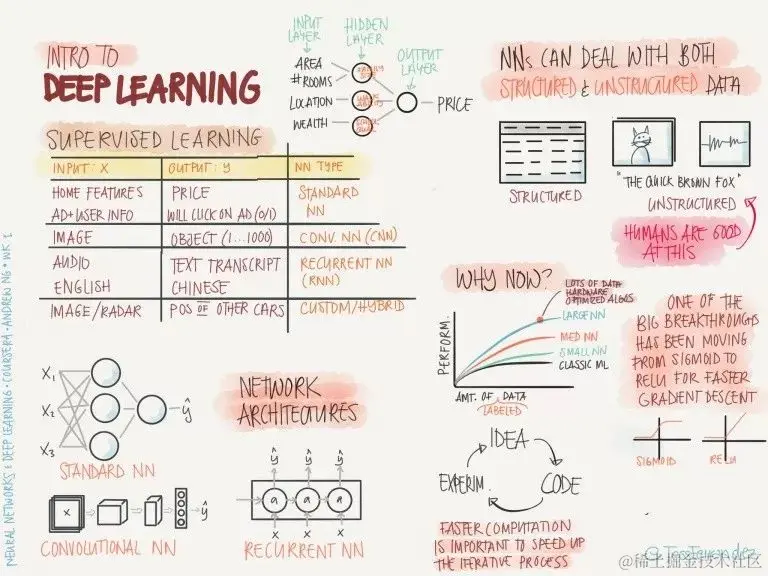 INTRO TO
DEEP LEARNING
INPUT LAYER
HIDDEN LAYER
OUTPUT LAYER
AREA
# ROOMS
LOCATION
WEALTH
PRICE
SUPERVISED LEARNING
INPUT: X OUTPUT: y NN TYPE
HOME FEATURES PRICE STANDARD
AD+USER INFO WILL CLICK ON AD (0/1) NN
IMAGE OBJECT (1...1000) CONV. NN (CNN)
AUDIO TEXT TRANSCRIPT RECURRENT NN
ENGLISH CHINESE (RNN)
IMAGE/RADAR POS OF OTHER CARS CUSTOM/HYBRID
NNs CAN DEAL WITH BOTH
STRUCTURED & UNSTRUCTURED DATA
STRUCTURED
"THE QUICK BROWN FOX"
UNSTRUCTURED
HUMANS ARE GOOD
AT THIS
WHY NOW?
LOTS OF DATA
HARDWARE
OPTIMIZED ALGOS
LARGE NN
MED NN
SMALL NN
CLASSIC ML
PERFORM.
AMT. OF DATA
LABELED
ONE OF THE
BIG BREAKTHROUGHS
HAS BEEN MOVING
FROM SIGMOID TO
RELU FOR FASTER
GRADIENT DESCENT
SIGMOID
RELU
IDEA
CODE
EXPERIM.
FASTER COMPUTATION
IS IMPORTANT TO SPEED UP
THE ITERATIVE PROCESS
NETWORK
ARCHITECTURES
X1
X2
X3
ŷ
STANDARD NN
X
ŷ
CONVOLUTIONAL NN
ŷ ŷ ŷ
a a a
X X X
RECURRENT NN
NEURAL NETWORKS & DEEP LEARNING · COURSERA · ANDREW NG · WK 1
@稀土掘金技术社区